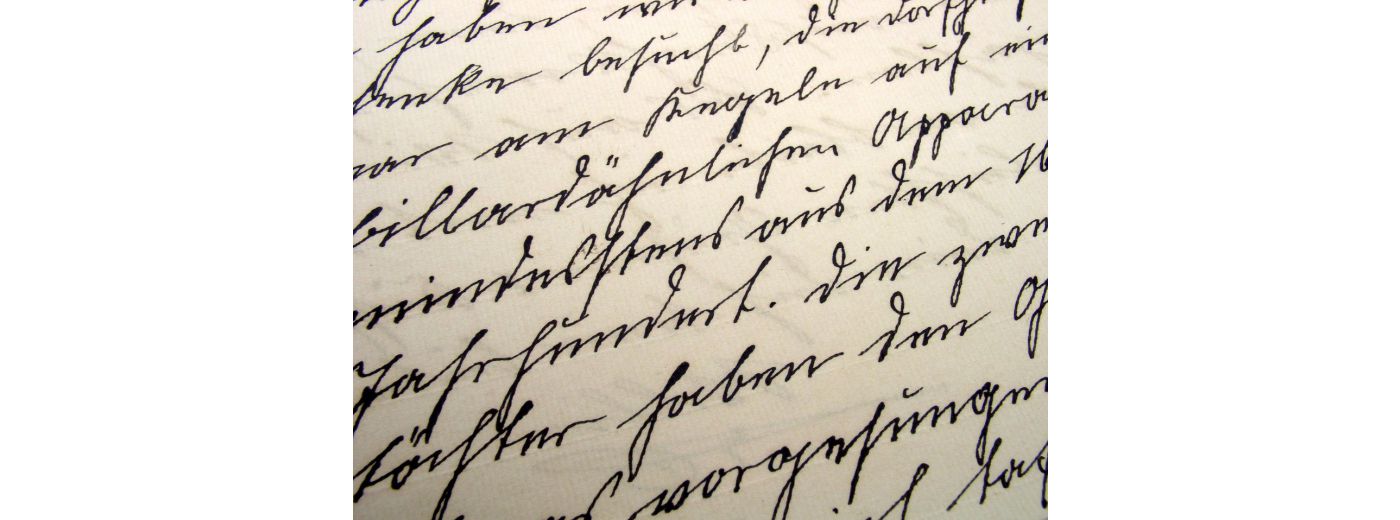 haben wir
besucht, die
am Kegeln auf ein
billardähnlichen Appara
mindestens aus dem 16
Jahrhundert. Die zwe
töchter haben den G
vorgesungen